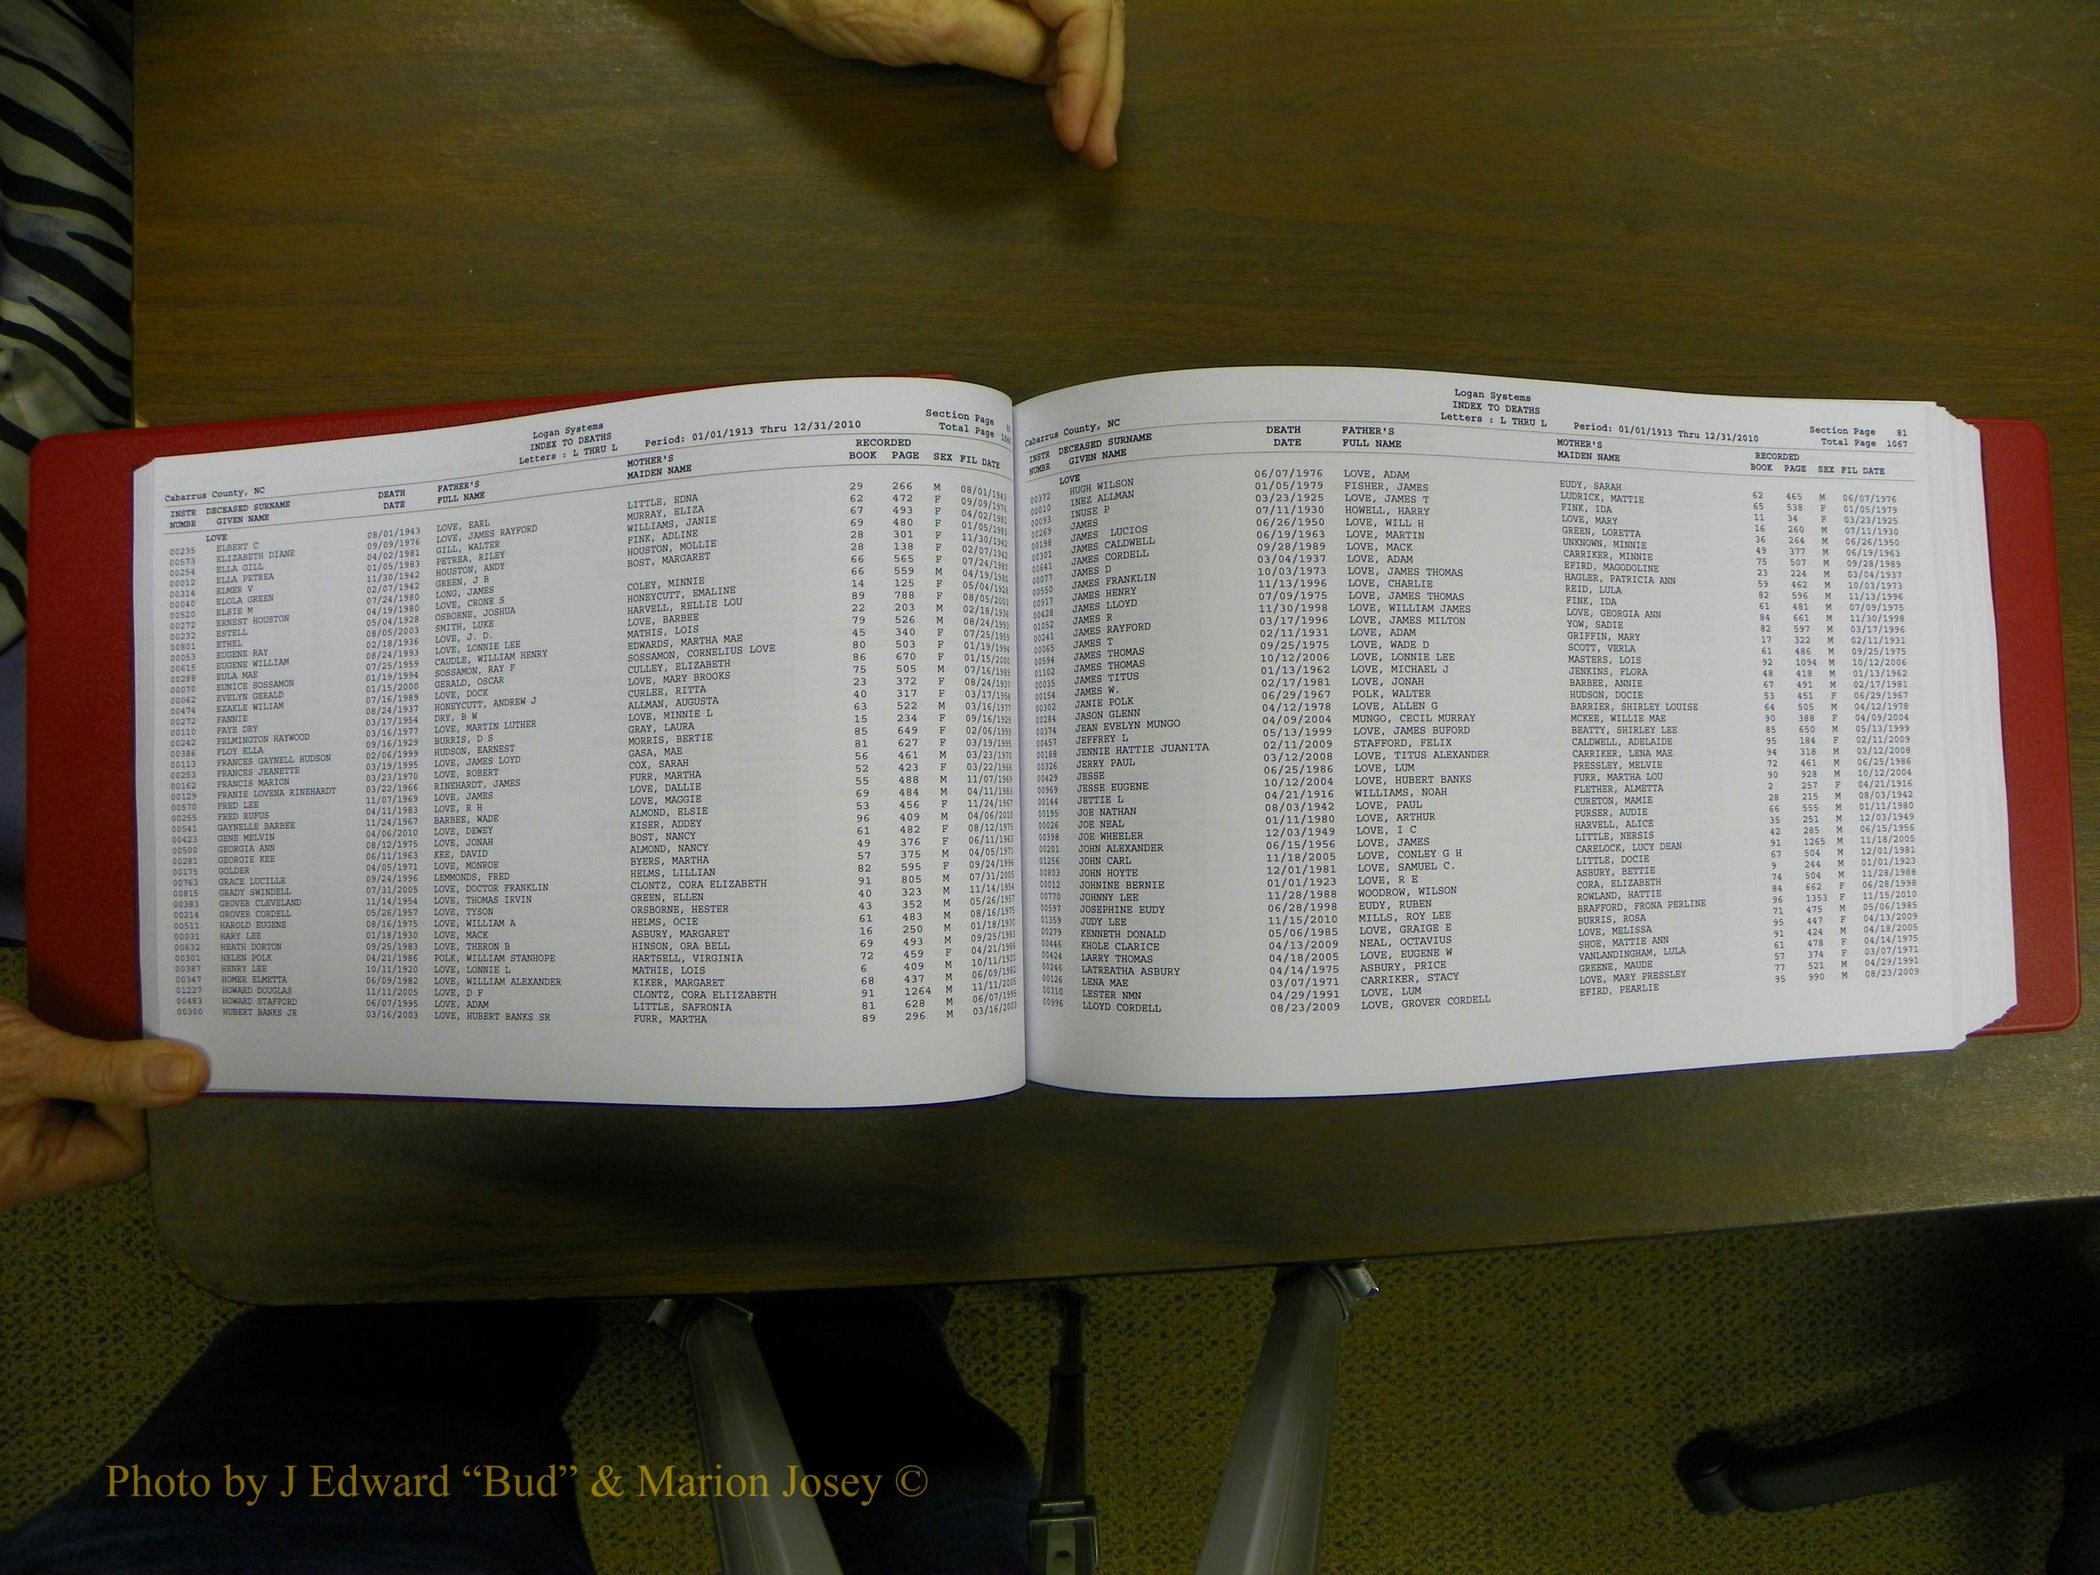 Logan Systems
INDEX TO DEATHS
Letters : L THRU L Period: 01/01/1913 Thru 12/31/2010
Section Page
Total Page
Cabarrus County, NC
INSTR DECEASED SURNAME DEATH FATHER'S MOTHER'S RECORDED
NUMBR GIVEN NAME DATE FULL NAME MAIDEN NAME BOOK PAGE SEX FIL DATE
LOVE
00235 ELBERT C 08/01/1943 LOVE, EARL LITTLE, EDNA 29 266 M 08/01/1943
00573 ELIZABETH DIANE 09/09/1976 LOVE, JAMES RAYFORD MURRAY, ELIZA 62 472 F 09/09/1976
00254 ELLA GILL 04/02/1981 GILL, WALTER WILLIAMS, JANIE 67 493 F 04/02/1981
00012 ELLA PETREA 01/05/1983 PETREA, RILEY FINK, ADLINE 69 480 F 01/05/1983
00314 ELMER V 11/30/1942 HOUSTON, ANDY HOUSTON, MOLLIE 28 301 F 11/30/1942
00040 ELOLA GREEN 02/07/1942 GREEN, J B BOST, MARGARET 28 138 F 02/07/1942
00520 ELSIE M 07/24/1980 LONG, JAMES 66 565 F 07/24/1980
00272 ERNEST HOUSTON 04/19/1980 LOVE, CRONE S COLEY, MINNIE 66 559 M 04/19/1980
00232 ESTELL 05/04/1928 OSBORNE, JOSHUA HONEYCUTT, EMALINE 14 125 F 05/04/1928
00801 ETHEL 08/05/2003 SMITH, LUKE HARVELL, RELLIE LOU 89 788 F 08/05/2003
00053 EUGENE RAY 02/18/1936 LOVE, J. D. LOVE, BARBEE 22 203 M 02/18/1936
00615 EUGENE WILLIAM 08/24/1993 LOVE, LONNIE LEE MATHIS, LOIS 79 526 M 08/24/1993
00288 EULA MAE 07/25/1959 CAUDLE, WILLIAM HENRY EDWARDS, MARTHA MAE 45 340 F 07/25/1959
00070 EUNICE SOSSAMON 01/19/1994 SOSSAMON, RAY F SOSSAMON, CORNELIUS LOVE 80 503 F 01/19/1994
00062 EVELYN GERALD 01/15/2000 GERALD, OSCAR CULLEY, ELIZABETH 86 670 F 01/15/2000
00474 EZAKLE WILIAM 07/16/1989 LOVE, DOCK LOVE, MARY BROOKS 75 505 M 07/16/1989
00272 FANNIE 08/24/1937 HONEYCUTT, ANDREW J CURLEE, RITTA 23 372 F 08/24/1937
00110 FAYE DRY 03/17/1954 DRY, B W ALLMAN, AUGUSTA 40 317 F 03/17/1954
00242 FELMINGTON HAYWOOD 03/16/1977 LOVE, MARTIN LUTHER LOVE, MINNIE L 63 522 M 03/16/1977
00386 FLOY ELLA 09/16/1929 BURRIS, D S GRAY, LAURA 15 234 F 09/16/1929
00113 FRANCES GAYNELL HUDSON 02/06/1999 HUDSON, EARNEST MORRIS, BERTIE 85 649 F 02/06/1999
00253 FRANCES JEANETTE 03/19/1995 LOVE, JAMES LOYD GASA, MAE 81 627 F 03/19/1995
00162 FRANCIS MARION 03/23/1970 LOVE, ROBERT COX, SARAH 56 461 M 03/23/1970
00129 FRANIE LOVENA RINEHARDT 03/22/1966 RINEHARDT, JAMES FURR, MARTHA 52 423 F 03/22/1966
00570 FRED LEE 11/07/1969 LOVE, JAMES LOVE, DALLIE 55 488 M 11/07/1969
00255 FRED RUFUS 04/11/1983 LOVE, R H LOVE, MAGGIE 69 484 M 04/11/1983
00541 GAYNELLE BARBEE 11/24/1967 BARBEE, WADE ALMOND, ELSIE 53 456 F 11/24/1967
00423 GENE MELVIN 04/06/2010 LOVE, DEWEY KISER, ADDEY 96 409 M 04/06/2010
00500 GEORGIA ANN 08/12/1975 LOVE, JONAH BOST, NANCY 61 482 F 08/12/1975
00281 GEORGIE KEE 06/11/1963 KEE, DAVID ALMOND, NANCY 49 376 F 06/11/1963
00175 GOLDER 04/05/1971 LOVE, MONROE BYERS, MARTHA 57 375 M 04/05/1971
00763 GRACE LUCILLE 09/24/1996 LEMMONDS, FRED HELMS, LILLIAN 82 595 F 09/24/1996
00815 GRADY SWINDELL 07/31/2005 LOVE, DOCTOR FRANKLIN CLONTZ, CORA ELIZABETH 91 805 M 07/31/2005
00383 GROVER CLEVELAND 11/14/1954 LOVE, THOMAS IRVIN GREEN, ELLEN 40 323 M 11/14/1954
00214 GROVER CORDELL 05/26/1957 LOVE, TYSON ORSBORNE, HESTER 43 352 M 05/26/1957
00511 HAROLD EUGENE 08/16/1975 LOVE, WILLIAM A HELMS, OCIE 61 483 M 08/16/1975
00031 HARY LEE 01/18/1930 LOVE, MACK ASBURY, MARGARET 16 250 M 01/18/1930
00632 HEATH DORTON 09/25/1983 LOVE, THERON B HINSON, ORA BELL 69 493 M 09/25/1983
00301 HELEN POLK 04/21/1986 POLK, WILLIAM STANHOPE HARTSELL, VIRGINIA 72 459 F 04/21/1986
00387 HENRY LEE 10/11/1920 LOVE, LONNIE L MATHIE, LOIS 6 409 M 10/11/1920
00347 HOMER ELMETTA 06/09/1982 LOVE, WILLIAM ALEXANDER KIKER, MARGARET 68 437 M 06/09/1982
01227 HOWARD DOUGLAS 11/11/2005 LOVE, D F CLONTZ, CORA ELIIZABETH 91 1264 M 11/11/2005
00483 HOWARD STAFFORD 06/07/1995 LOVE, ADAM LITTLE, SAFRONIA 81 628 M 06/07/1995
00300 HUBERT BANKS JR 03/16/2003 LOVE, HUBERT BANKS SR FURR, MARTHA 89 296 M 03/16/2003
Logan Systems
INDEX TO DEATHS
Letters : L THRU L Period: 01/01/1913 Thru 12/31/2010
Section Page 81
Total Page 1067
Cabarrus County, NC
INSTR DECEASED SURNAME DEATH FATHER'S MOTHER'S RECORDED
NUMBR GIVEN NAME DATE FULL NAME MAIDEN NAME BOOK PAGE SEX FIL DATE
LOVE
00372 HUGH WILSON 06/07/1976 LOVE, ADAM EUDY, SARAH 62 465 M 06/07/1976
00010 INEZ ALLMAN 01/05/1979 FISHER, JAMES LUDRICK, MATTIE 65 538 F 01/05/1979
00093 INUSE P 03/23/1925 LOVE, JAMES T FINK, IDA 11 34 F 03/23/1925
00269 JAMES 07/11/1930 HOWELL, HARRY LOVE, MARY 16 260 M 07/11/1930
00198 JAMES LUCIOS 06/26/1950 LOVE, WILL H GREEN, LORETTA 36 264 M 06/26/1950
00301 JAMES CALDWELL 06/19/1963 LOVE, MARTIN UNKNOWN, MINNIE 49 377 M 06/19/1963
00641 JAMES CORDELL 09/28/1989 LOVE, MACK CARRIKER, MINNIE 75 507 M 09/28/1989
00077 JAMES D 03/04/1937 LOVE, ADAM EFIRD, MAGODOLINE 23 224 M 03/04/1937
00550 JAMES FRANKLIN 10/03/1973 LOVE, JAMES THOMAS HAGLER, PATRICIA ANN 59 462 M 10/03/1973
00917 JAMES HENRY 11/13/1996 LOVE, CHARLIE REID, LULA 82 596 M 11/13/1996
00428 JAMES LLOYD 07/09/1975 LOVE, JAMES THOMAS FINK, IDA 61 481 M 07/09/1975
01052 JAMES R 11/30/1998 LOVE, WILLIAM JAMES LOVE, GEORGIA ANN 84 661 M 11/30/1998
00241 JAMES RAYFORD 03/17/1996 LOVE, JAMES MILTON YOW, SADIE 82 597 M 03/17/1996
00065 JAMES T 02/11/1931 LOVE, ADAM GRIFFIN, MARY 17 322 M 02/11/1931
00594 JAMES THOMAS 09/25/1975 LOVE, WADE D SCOTT, VERLA 61 486 M 09/25/1975
01102 JAMES THOMAS 10/12/2006 LOVE, LONNIE LEE MASTERS, LOIS 92 1094 M 10/12/2006
00035 JAMES TITUS 01/13/1962 LOVE, MICHAEL J JENKINS, FLORA 48 418 M 01/13/1962
00154 JAMES W. 02/17/1981 LOVE, JONAH BARBEE, ANNIE 67 491 M 02/17/1981
00302 JANIE POLK 06/29/1967 POLK, WALTER HUDSON, DOCIE 53 451 F 06/29/1967
00284 JASON GLENN 04/12/1978 LOVE, ALLEN G BARRIER, SHIRLEY LOUISE 64 505 M 04/12/1978
00374 JEAN EVELYN MUNGO 04/09/2004 MUNGO, CECIL MURRAY MCKEE, WILLIE MAE 90 388 F 04/09/2004
00457 JEFFREY L 05/13/1999 LOVE, JAMES BUFORD BEATTY, SHIRLEY LEE 85 650 M 05/13/1999
00188 JENNIE HATTIE JUANITA 02/11/2009 STAFFORD, FELIX CALDWELL, ADELAIDE 95 184 F 02/11/2009
00326 JERRY PAUL 03/12/2008 LOVE, TITUS ALEXANDER CARRIKER, LENA MAE 94 318 M 03/12/2008
00429 JESSE 06/25/1986 LOVE, LUM PRESSLEY, MELVIE 72 461 M 06/25/1986
00969 JESSE EUGENE 10/12/2004 LOVE, HUBERT BANKS FURR, MARTHA LOU 90 928 M 10/12/2004
00144 JETTIE L 04/21/1916 WILLIAMS, NOAH FLETHER, ALMETTA 2 257 F 04/21/1916
00195 JOE NATHAN 08/03/1942 LOVE, PAUL CURETON, MAMIE 28 215 M 08/03/1942
00026 JOE NEAL 01/11/1980 LOVE, ARTHUR PURSER, AUDIE 66 555 M 01/11/1980
00398 JOE WHEELER 12/03/1949 LOVE, I C HARVELL, ALICE 35 251 M 12/03/1949
00201 JOHN ALEXANDER 06/15/1956 LOVE, JAMES LITTLE, NERSIS 42 285 M 06/15/1956
01256 JOHN CARL 11/18/2005 LOVE, CONLEY G H CARELOCK, LUCY DEAN 91 1265 M 11/18/2005
00803 JOHN HOYTE 12/01/1981 LOVE, SAMUEL C. LITTLE, DOCIE 67 504 M 12/01/1981
00012 JOHNINE BERNIE 01/01/1923 LOVE, R E ASBURY, BETTIE 9 244 M 01/01/1923
00770 JOHNNY LEE 11/28/1988 WOODROW, WILSON CORA, ELIZABETH 74 504 M 11/28/1988
00597 JOSEPHINE EUDY 06/28/1998 EUDY, RUBEN ROWLAND, HATTIE 84 662 F 06/28/1998
01359 JUDY LEE 11/15/2010 MILLS, ROY LEE BRAFFORD, FRONA PERLINE 96 1353 F 11/15/2010
00279 KENNETH DONALD 05/06/1985 LOVE, GRAIGE E BURRIS, ROSA 71 475 M 05/06/1985
00446 KHOLE CLARICE 04/13/2009 NEAL, OCTAVIUS LOVE, MELISSA 95 447 F 04/13/2009
00424 LARRY THOMAS 04/18/2005 LOVE, EUGENE W SHOE, MATTIE ANN 91 424 M 04/18/2005
00246 LATREATHA ASBURY 04/14/1975 ASBURY, PRICE VANLANDINGHAM, LULA 61 478 F 04/14/1975
00126 LENA MAE 03/07/1971 CARRIKER, STACY GREENE, MAUDE 57 374 F 03/07/1971
00310 LESTER NMN 04/29/1991 LOVE, LUM LOVE, MARY PRESSLEY 77 521 M 04/29/1991
00996 LLOYD CORDELL 08/23/2009 LOVE, GROVER CORDELL EFIRD, PEARLIE 95 990 M 08/23/2009
Photo by J Edward “Bud” & Marion Josey ©